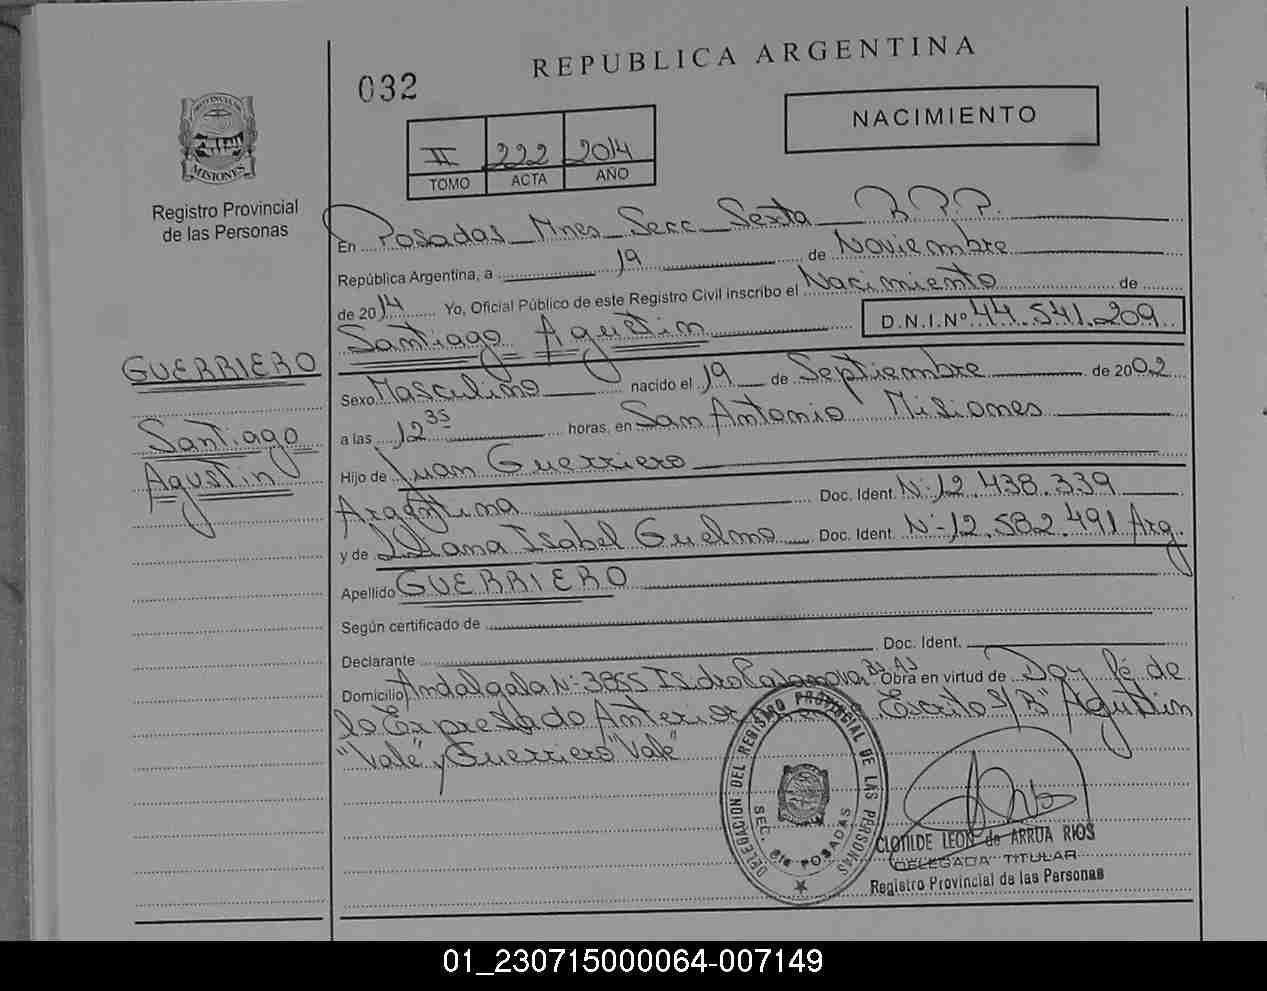 REPUBLICA ARGENTINA
032
NACIMIENTO
II 222 2014
TOMO ACTA AÑO
PROVINCIA DE
MISIONES
Registro Provincial
de las Personas
En Posadas Mnes Secc. Sexta R.P.P.
República Argentina, a 19 de Noviembre
de 2014 Yo, Oficial Público de este Registro Civil inscribo el Nacimiento de
Santiago Agustin D.N.I.Nº 44.541.209
GUERRIERO
Sexo Masculino nacido el 19 de Septiembre de 2002
Santiago
a las 12 35 horas, en San Antonio Misiones
Agustin
Hijo de Juan Guerriero
Argentina Doc. Ident. Nº 12.438.339
y de Liliana Isabel Guelmo Doc. Ident. Nº 12.582.491 Arg.
Apellido GUERRIERO
Según certificado de
Declarante Doc. Ident.
Domicilio Andalgala Nº 3855 Isidro Casanova Bs As Obra en virtud de Doy fé de
lo Expresado Anterior Escrito S/R "Agustin
"Vale" y Guerriero "Vale"
DELEGACION DEL REGISTRO PROVINCIAL DE LAS PERSONAS
SEC. 6ta POSADAS
CLOTILDE LEON de ARRUA RIOS
DELEGADA TITULAR
Registro Provincial de las Personas
01_230715000064-007149